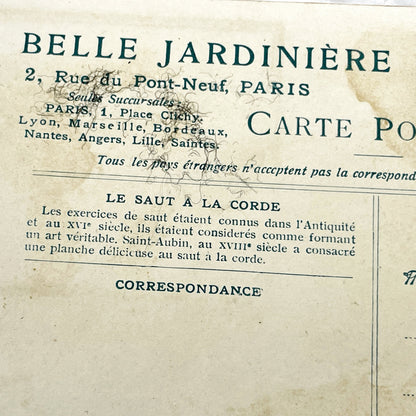 BELLE JARDINIÈRE
2, Rue du Pont-Neuf, PARIS
Seules Succursales:
PARIS, 1, Place Clichy.
Lyon, Marseille, Bordeaux,
Nantes, Angers, Lille, Saintes.
CARTE PO
Tous les pays étrangers n'acceptent pas la correspond
LE SAUT A LA CORDE
Les exercices de saut étaient connus dans l'Antiquité
et au XVIe siècle, ils étaient considérés comme formant
un art véritable. Saint-Aubin, au XVIIIe siècle a consacré
une planche délicieuse au saut à la corde.
CORRESPONDANCE